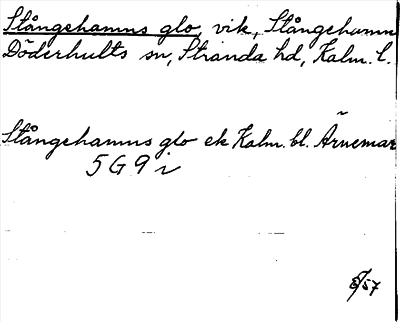 Stångehamns glo, vik, Stångehamn
Döderhults sn, Stranda hd, Kalm. l.
Stångehamns glo ek Kalm. bl. Ärnemar
5 G 9 i
57